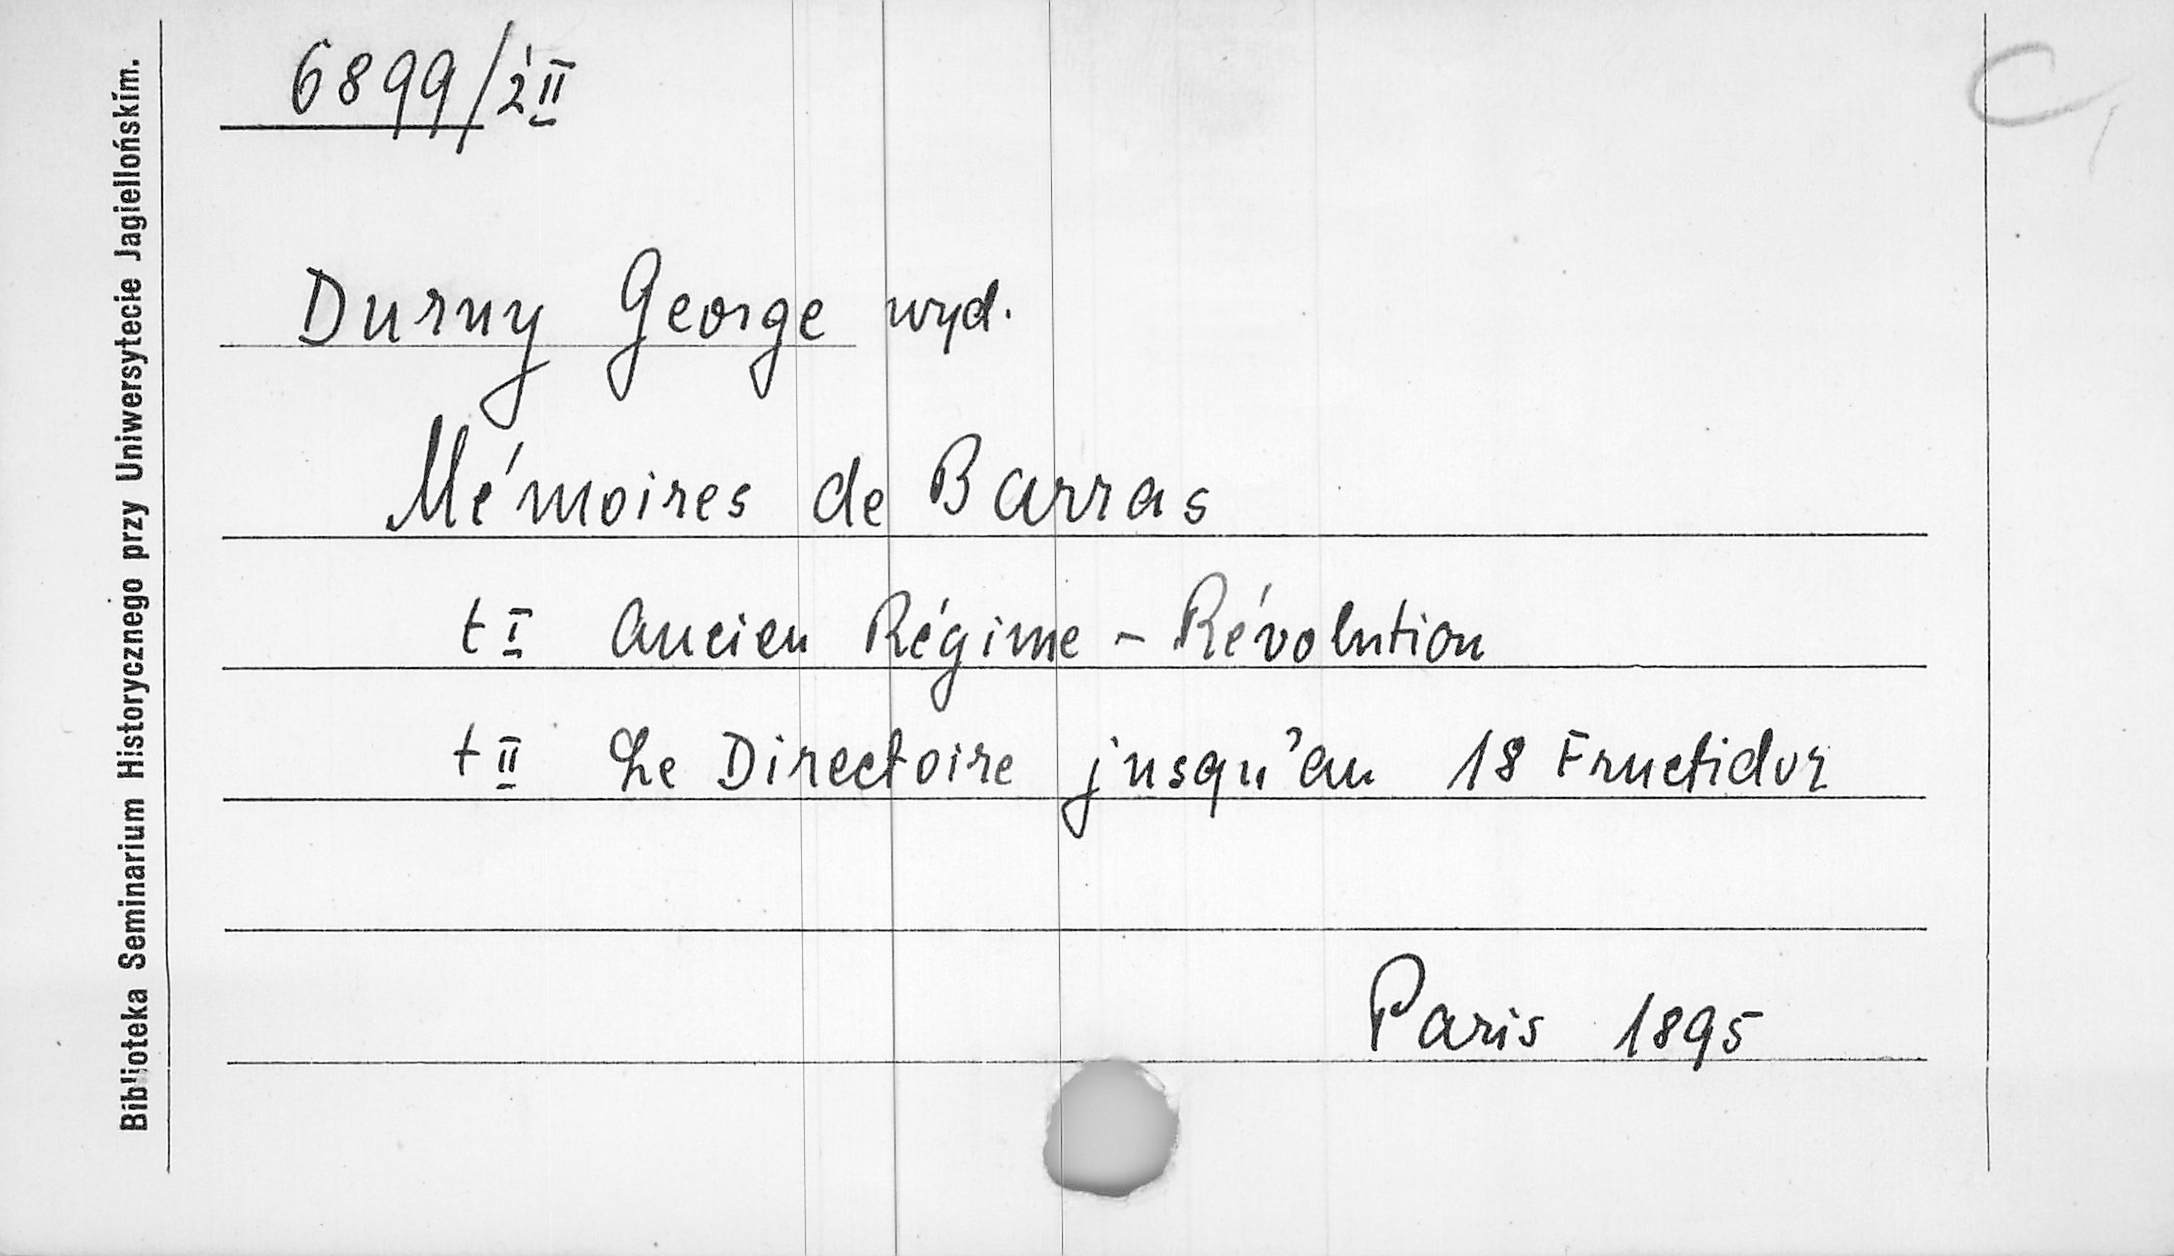 6899/i II
Duruy George wyd.
Mémoires de Barras
t I Ancien Régime - Révolution
t II Le Directoire jusqu'au 18 Fructidor
Paris 1895
Biblioteka Seminarium Historycznego przy Uniwersytecie Jagiellońskim.